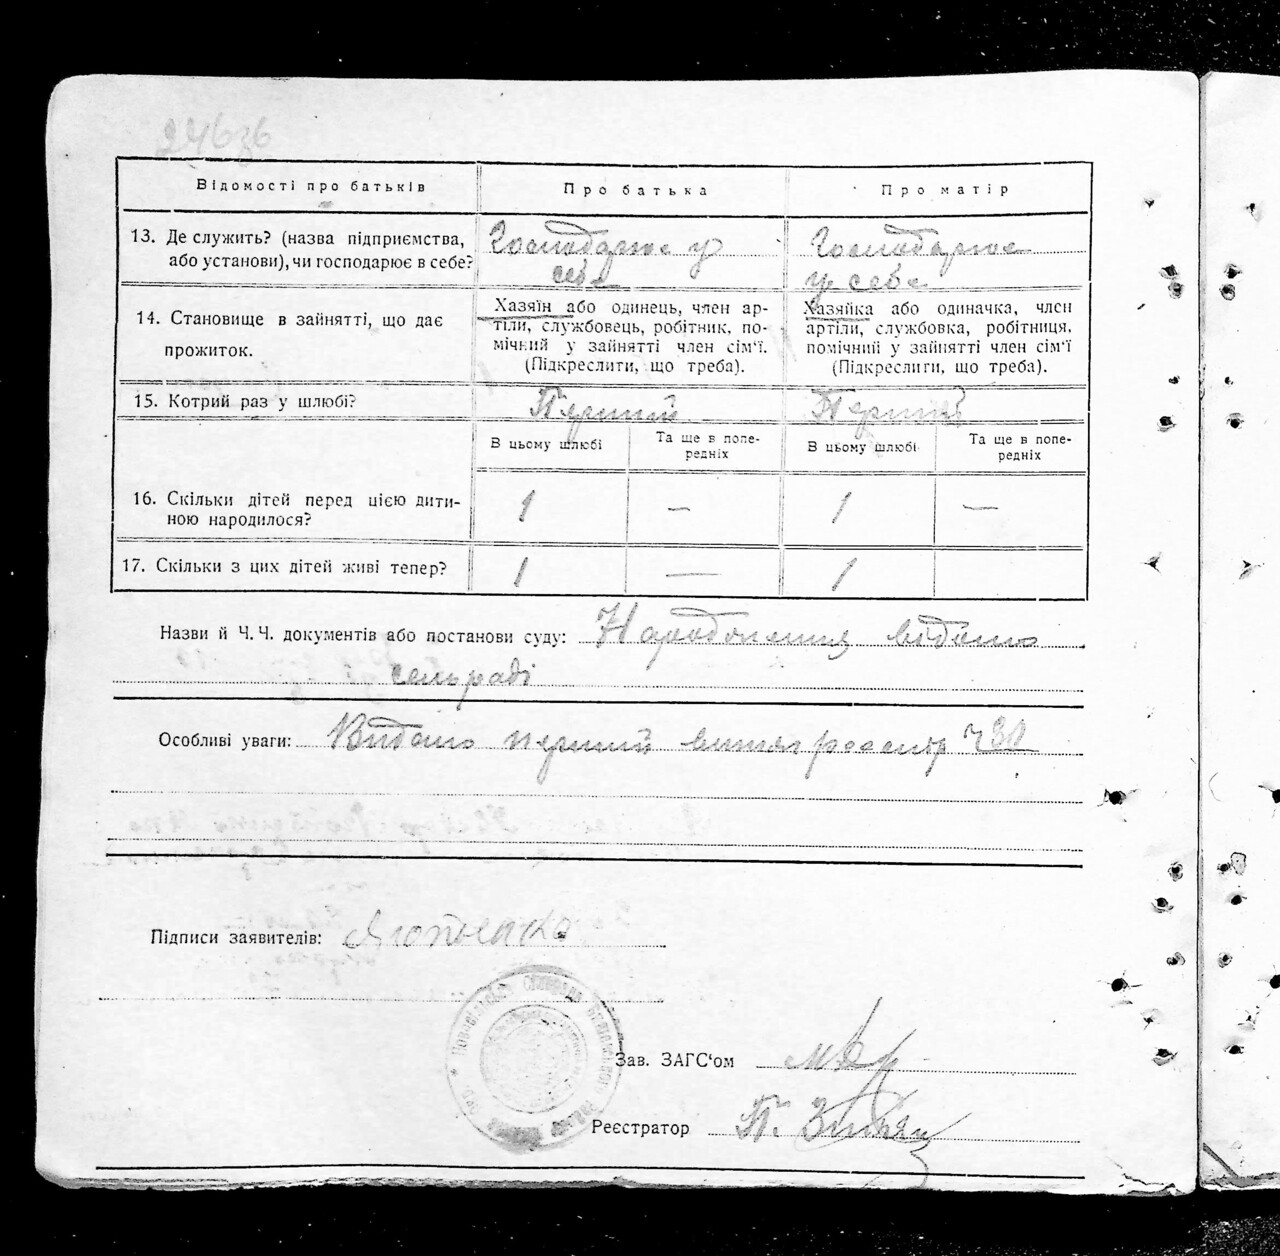 24636
Відомості про батьків
Про батька
Про матір
13. Де служить? (назва підприємства,
або установи), чи господарює в себе?
Господарює у
себе
Господарює
у себе
14. Становище в зайнятті, що дає
прожиток.
Хазяїн або одинець, член ар-
тіли, службовець, робітник, по-
мічний у зайнятті член сім'ї.
(Підкреслити, що треба).
Хазяйка або одиначка, член
артіли, службовка, робітниця,
помічний у зайнятті член сім'ї
(Підкреслити, що треба).
15. Котрий раз у шлюбі?
Перший
Перший
В цьому шлюбі
Та ще в попе-
редніх
В цьому шлюбі
Та ще в попе-
редніх
16. Скільки дітей перед цією дити-
ною народилося?
1
—
1
—
17. Скільки з цих дітей живі тепер?
1
—
1
Назви й Ч. Ч. документів або постанови суду: Народження відомо
сельраді
Особливі уваги: Видано перший витяг реєстр
Підписи заявителів:
Зав. ЗАГС'ом
Реєстратор П.